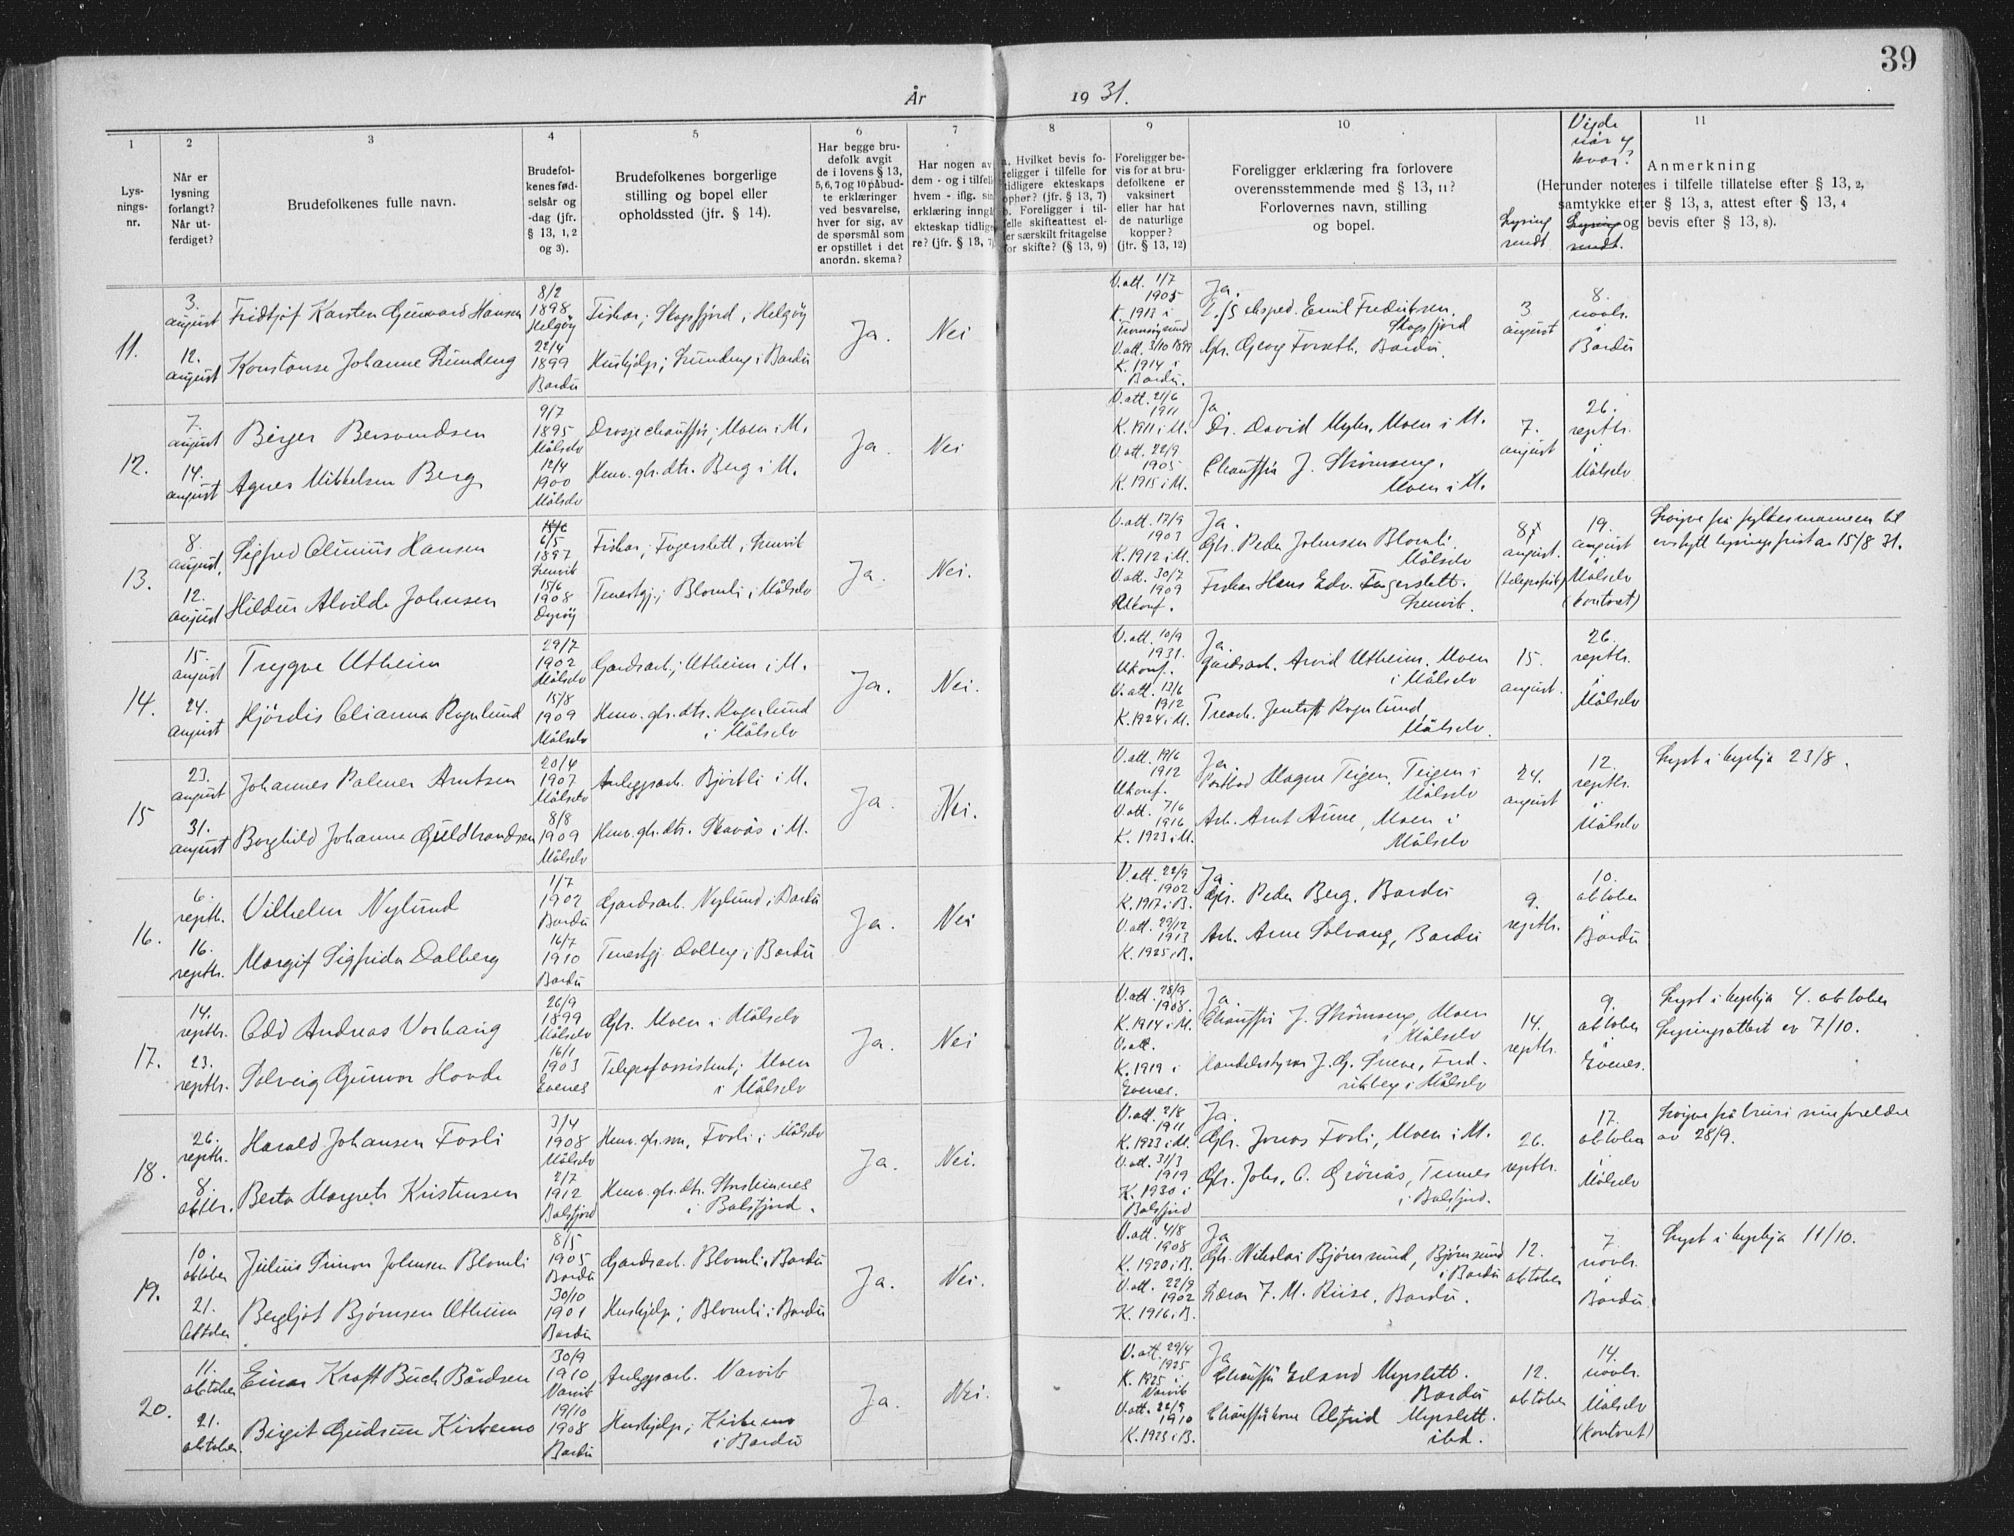 39
År 1931.
1
Lys-
nings-
nr.
2
Når er
lysning
forlangt?
Når ut-
ferdiget?
3
Brudefolkenes fulle navn.
4
Brudefol-
kenes fød-
selsår og
-dag (jfr.
§ 13, 1, 2
og 3).
5
Brudefolkenes borgerlige
stilling og bopel eller
opholdssted (jfr. § 14).
6
Har begge bru-
defolk avgit
de i lovens § 13,
5, 6, 7 og 10 påbud-
te erklæringer
ved besvarelse,
hver for sig, av
de spørsmål som
er opstillet i det
anordn. skema?
7
Har nogen av
dem - og i tilfelle
hvem - iflg. sin
erklæring inngått
ekteskap tidlige-
re? (jfr. § 13, 7)
8
a. Hvilket bevis fo-
religger i tilfelle for
tidligere ekteskaps
ophør? (jfr. § 13, 7)
b. Foreligger i til-
felle skifteattest el-
ler særskilt fritagelse
for skifte? (§ 13, 9)
9
Foreligger be-
vis for at bru-
defolkene er
vaksinert
eller har hat
de naturlige
kopper?
(jfr. § 13, 12)
10
Foreligger erklæring fra forlovere
overensstemmende med § 13, 11?
Forlovernes navn, stilling
og bopel.
Lysing
sendt
Vigde
når og
kvar?
Lysing
sendt.
11
Anmerkning
(Herunder noteres i tilfelle tillatelse efter § 13, 2,
samtykke efter § 13, 3, attest efter § 13, 4
og bevis efter § 13, 8).
11.
3.
august
12.
august
Fridtjof Karsten Gunvard Hansen
Konstanse Johanne Lundeng
8/2
1898
Helgøy
22/4
1899
Bardu
Fiskar; Skogsfjord, Helgøy
Hushjelp; Lundeng i Bardu
Ja.
Nei
V.att. 1/7
1905
K. 1913 i
Tromsøysund
V.att. 3/10 1899
K. 1914 i
Bardu.
Ja.
D/S eksped. Emil Fredriksen,
Skogsfjord
Gbr. Georg Forseth, Bardu.
3
august
8.
novbr.
i
Bardu
12.
7.
august
14.
august
Birger Bersvendsen
Agnes Mikkelsen Berg
9/7
1895
Målselv
12/4
1900
Målselv
Drosjechauffør; Moen i M.
Hmv. gbr. dtr. Berg i M.
Ja.
Nei
V.att. 21/6
1911
K. 1911 i M.
V.att. 22/9
1905
K. 1915 i M.
Ja.
Dr. David Myhr, Moen i M.
Chauffør J. Strømseng,
Moen i M.
7.
august
26.
septbr.
i
Målselv
13.
8.
august.
12.
august
Sigfred Olinius Hansen
Hildur Alvilde Johnsen
6/5
1897
Lenvik
15/6
1908
Dyrøy
Fiskar; Fagerslett, Lenvik
Tenestgj.; Blomli i Målselv
Ja.
Nei.
V.att. 17/9
1903
K. 1912 i M.
V.att. 30/7
1909
Ukonf.
Ja.
Gbr. Peder Johnsen Blomli,
Målselv
Fiskar Hans Edv. Fagerslett,
Lenvik.
8.
august.
(telegrafisk)
19.
august
i
Målselv
(kontoret)
Løyve frå fylkesmannen til
avstytt lysingsfrist av 15/8 31.
14.
15.
august
24.
august
Trygve Utheim
Hjørdis Elianna Rognlund
29/7
1902
Målselv
15/8
1909
Målselv
Gardsarb.; Utheim i M.
Hmv. gbr. dtr. Rognlund
i Målselv
Ja.
Nei.
V.att. 10/9
1931.
Ukonf.
V.att. 13/6
1912
K. 1924 i M.
Ja.
Gardsarb. Arvid Utheim, Moen
i Målselv
Trearb. Jentoft Rognlund,
Målselv.
15.
august.
26.
septbr.
i
Målselv
15
23.
august
31.
august
Johannes Palmer Arntsen
Borghild Johanna Guldbrandsen
20/4
1907
Målselv
8/8
1909
Målselv
Anleggsarb. Bjørkli i M.
Hmv. gbr. dtr. Skavås i M.
Ja.
Nei.
V.att. 19/6
1912
Ukonf.
V.att. 7/6
1916
K. 1923 i M.
Ja.
Postbod Magne Teigen, Teigen i
Målselv
Arb. Arnt Aune, Moen i
Målselv
24.
august
12.
septbr.
i
Målselv
Lyst i kyrkja 23/8.
16.
6.
septbr.
16.
septbr.
Vilhelm Nylund
Margit Sigfrida Dalberg
1/7
1902
Bardu
16/7
1910
Bardu
Gardsarb. Nylund i Bardu
Tenestgj. Dalberg i Bardu
Ja.
Nei
V.att. 22/9
1902
K. 1917 i B.
V.att. 29/12
1913
K. 1925 i B.
Ja
Gbr. Peder Berg, Bardu
Arb. Arne Solvang, Bardu
9.
septbr.
10.
oktober
i
Bardu
17.
14.
septbr.
23.
septbr.
Odd Andreas Vorhaug
Solveig Gunvor Hovde
26/9
1899
Målselv
16/1
1903
Evenes
Gbr. Moen i Målselv
Telegrafassistent; Moen
i Målselv
Ja.
Nei
V.att. 28/9
1908.
K. 1914 i M.
V.att.
K. 1919 i
Evenes.
Ja
Chauffør J. Strømseng, Moen
i Målselv
Handelsstyrer J. G. Sneve, Fred-
riksberg i Målselv
14.
septbr.
9.
oktober
i
Evenes.
Lyst i kyrkja 4. oktober
Lysingsattest av 7/10.
18.
26.
septbr.
8.
oktbr.
Harald Johansen Fosli
Berta Margrete Kristensen
3/4
1908
Målselv
2/7
1912
Balsfjord
Hmv. gbr. søn, Fosli i Målselv
Hmv. gbr. dtr.
i Balsfjord.
Ja.
Nei.
V.att. 2/8
1911
K. 1923 i M.
V.att. 31/3
1919
K. 1930 i
Balsfjord
Ja.
Gbr. Jonas Fosli, Moen i M.
Gbr. Johs. C. Grønås, Tennes
i Balsfjord.
26.
septbr.
17.
oktober
i
Målselv
Løyve frå bruri sine foreldre
av 28/9.
19.
10.
oktober
21.
Oktober
Julius Simon Johnsen Blomli
Bergljot Bjørnsen Utheim
8/5
1905
Bardu
30/10
1901
Bardu
Gardsarb. Blomli, Bardu
Hushjelp; Blomli i Bardu
Ja.
Nei.
V.att. 4/8
1908
K. 1920 i B.
V.att. 22/9
1902
K. 1916 i B.
Ja
Gbr. Nikolai Bjørnsund, Bjørnsund
i Bardu
Lærar J. M. Riise, Bardu.
12.
oktober
7.
novbr.
i
Bardu.
Lyst i kyrkja 11/10.
20.
11.
oktober
21.
oktober
Einar Kraft Buch Bårdsen
Birgit Gudrun Kirkemo
30/9
1910
Narvik
19/10
1908
Bardu
Anleggsarb. Narvik
Hushjelp; Kirkemo
i Bardu
Ja.
Nei.
V.att. 29/4
1925
K. 1925 i
Narvik
V.att. 22/9
1910
K. 1923 i B.
Ja
Chauffør Erland Myrslett.
Bardu
Chaufførkone Alfrid Myrslett.
ibd.
12.
oktober
14.
novbr.
i
Målselv
(kontoret)